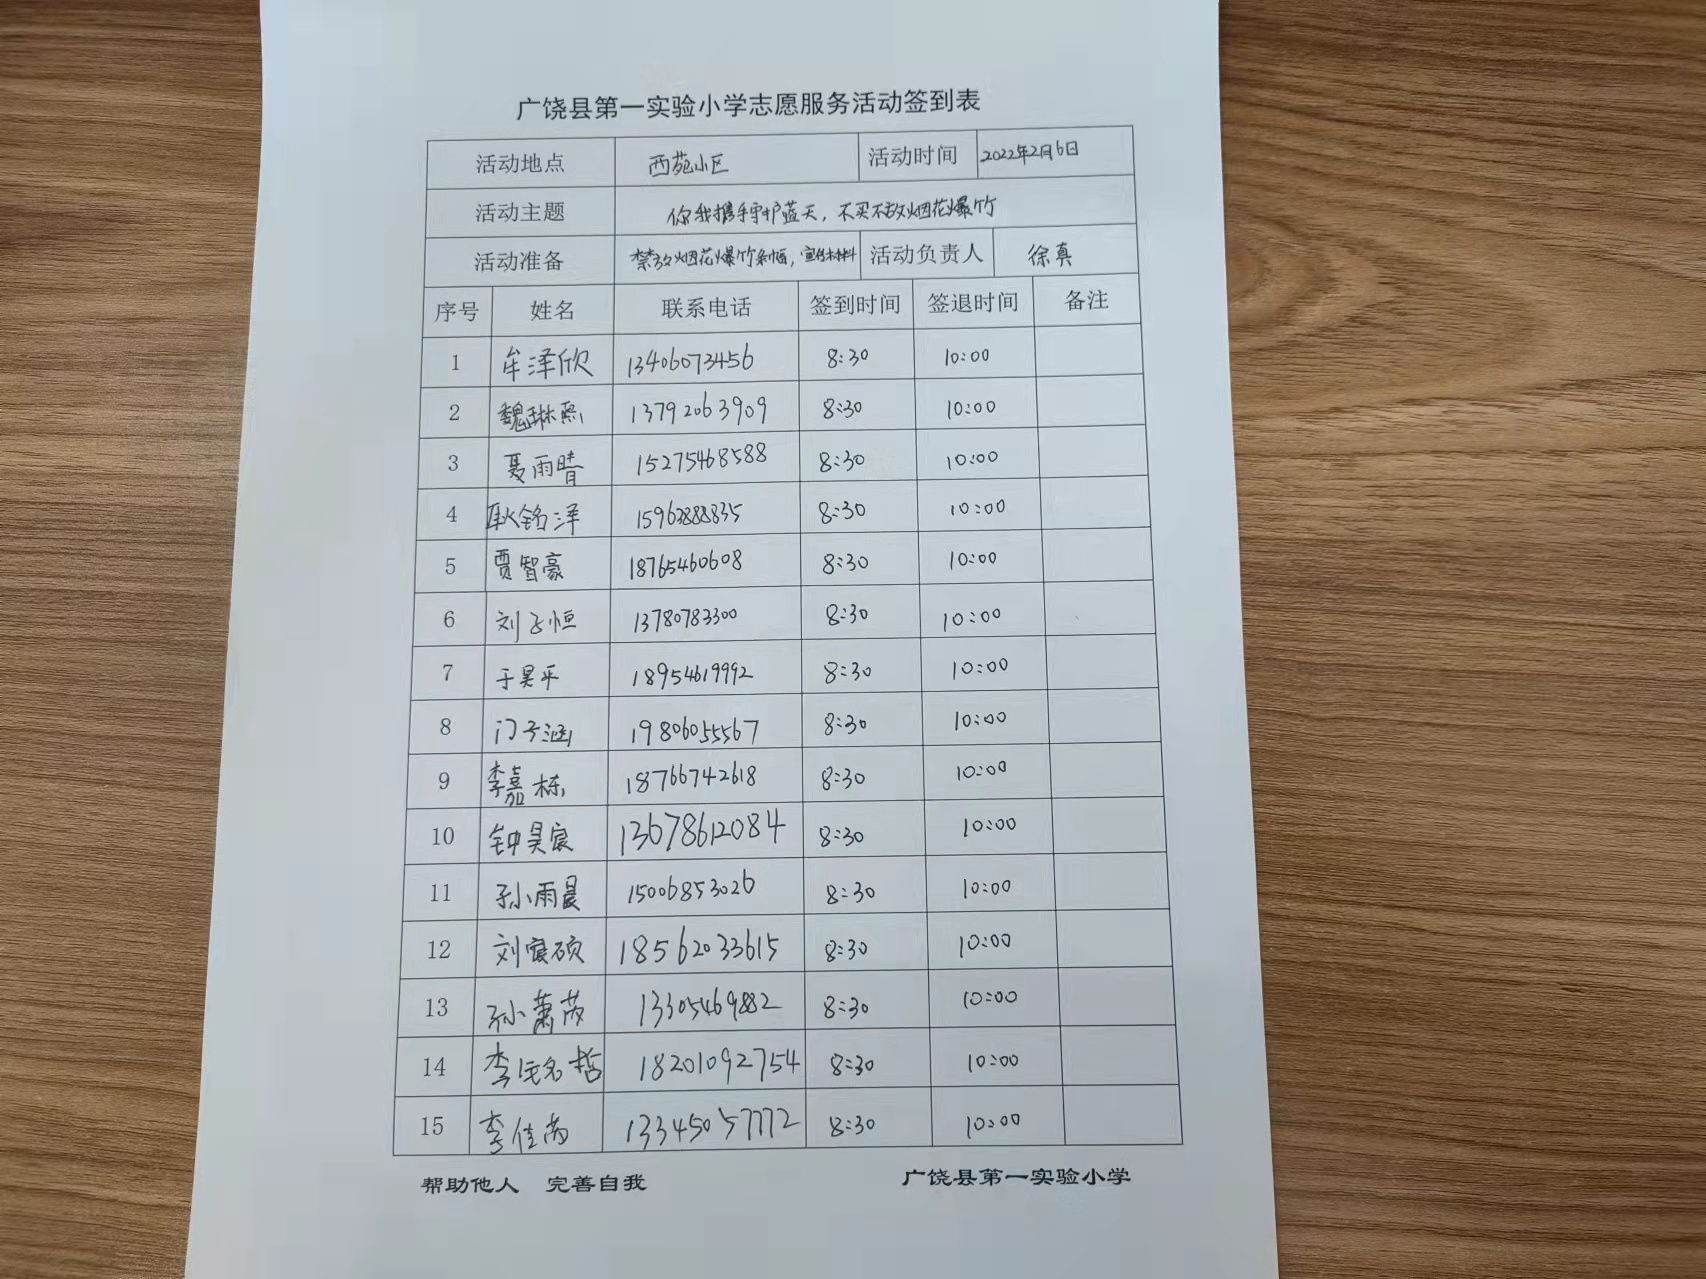 广饶县第一实验小学志愿服务活动签到表
活动地点 西苑小区 活动时间 2022年2月6日
活动主题 你我携手守护蓝天，不买不放烟花爆竹
活动准备 禁放烟花爆竹条幅，宣传材料 活动负责人 徐真
序号 姓名 联系电话 签到时间 签退时间 备注
1 牟泽欣 13406073456 8:30 10:00
2 魏琳熙 13792063909 8:30 10:00
3 聂雨晴 15275468588 8:30 10:00
4 耿铭洋 15963888835 8:30 10:00
5 贾智豪 18765460608 8:30 10:00
6 刘子恒 13780783300 8:30 10:00
7 于昊平 18954619992 8:30 10:00
8 门子涵 19806055567 8:30 10:00
9 李嘉栋 18766742618 8:30 10:00
10 钟昊宸 13678612084 8:30 10:00
11 孙雨晨 15006853026 8:30 10:00
12 刘宸硕 18562033615 8:30 10:00
13 孙萧芮 13305469882 8:30 10:00
14 李 哲 18201092754 8:30 10:00
15 李佳芮 13345057772 8:30 10:00
帮助他人 完善自我 广饶县第一实验小学